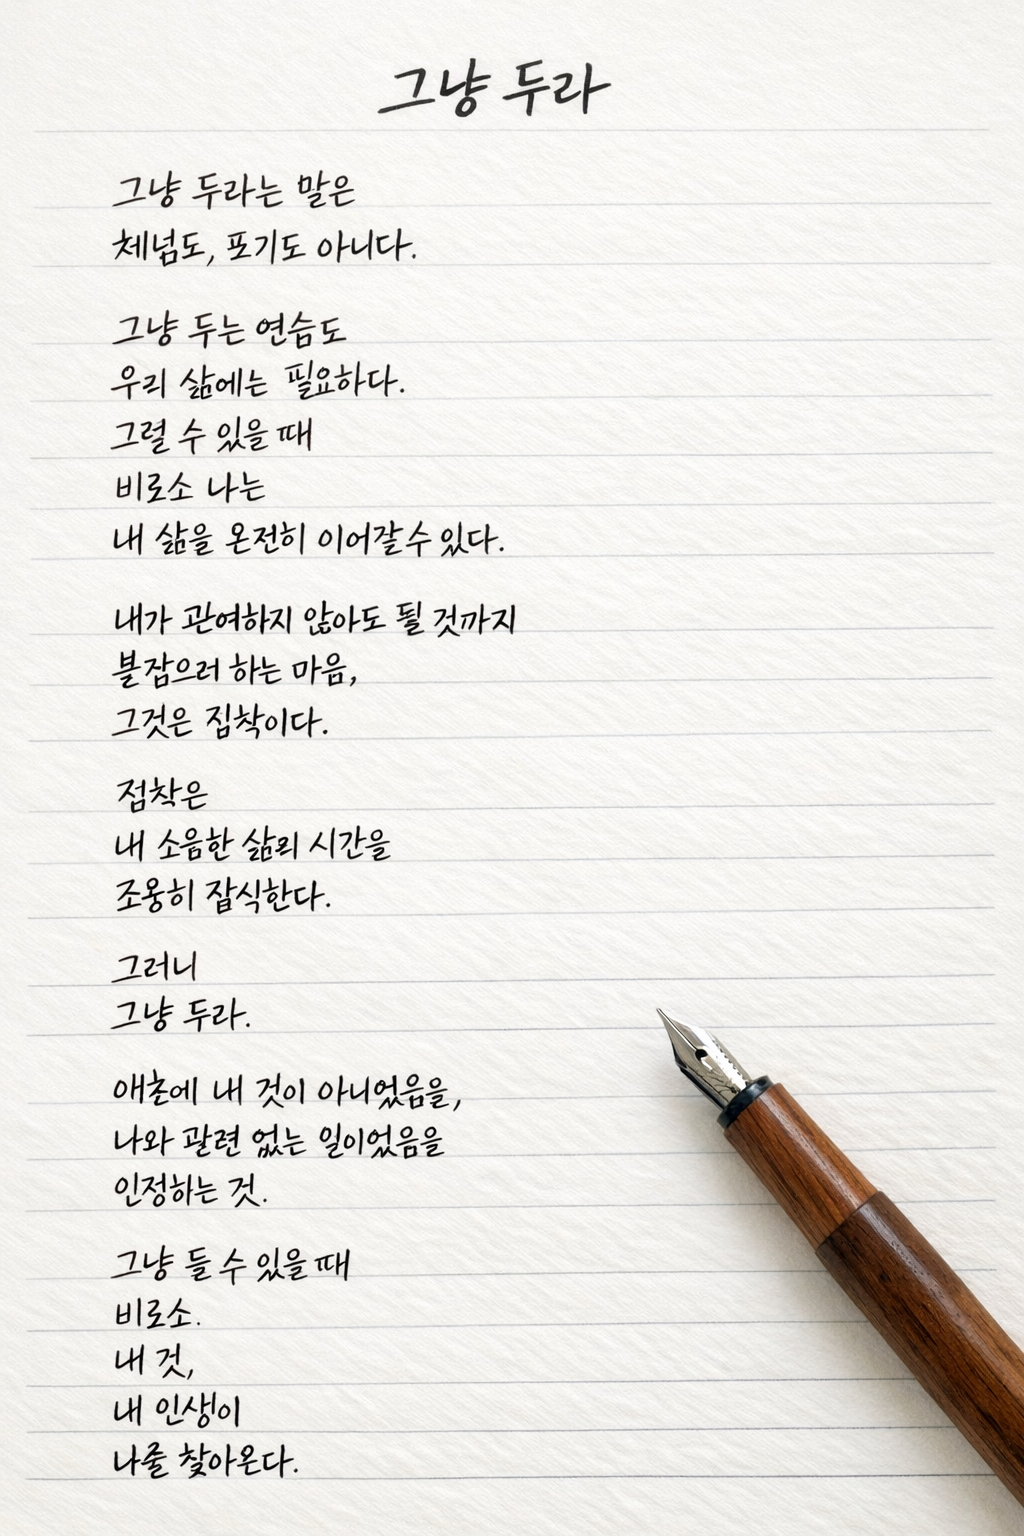 그냥 두라
그냥 두라는 말은
체념도, 포기도 아니다.
그냥 두는 연습도
우리 삶에는 필요하다.
그럴 수 있을 때
비로소 나는
내 삶을 온전히 이어갈 수 있다.
내가 관여하지 않아도 될 것까지
붙잡으러 하는 마음,
그것은 집착이다.
접착은
내 소음한 삶의 시간을
조웅히 잡식한다.
그러니
그냥 두라.
애초에 내 것이 아니었음을,
나와 괄련 없는 일이었음을
인정하는 것.
그냥 들 수 있을 때
비로소.
내 것,
내 인생이
나줄 찾아온다.